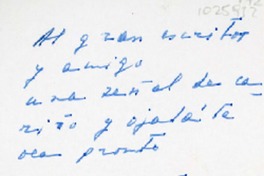 1025922
Al gran escritor
y amigo
una señal de ca-
riño y ojalá te
vea pronto